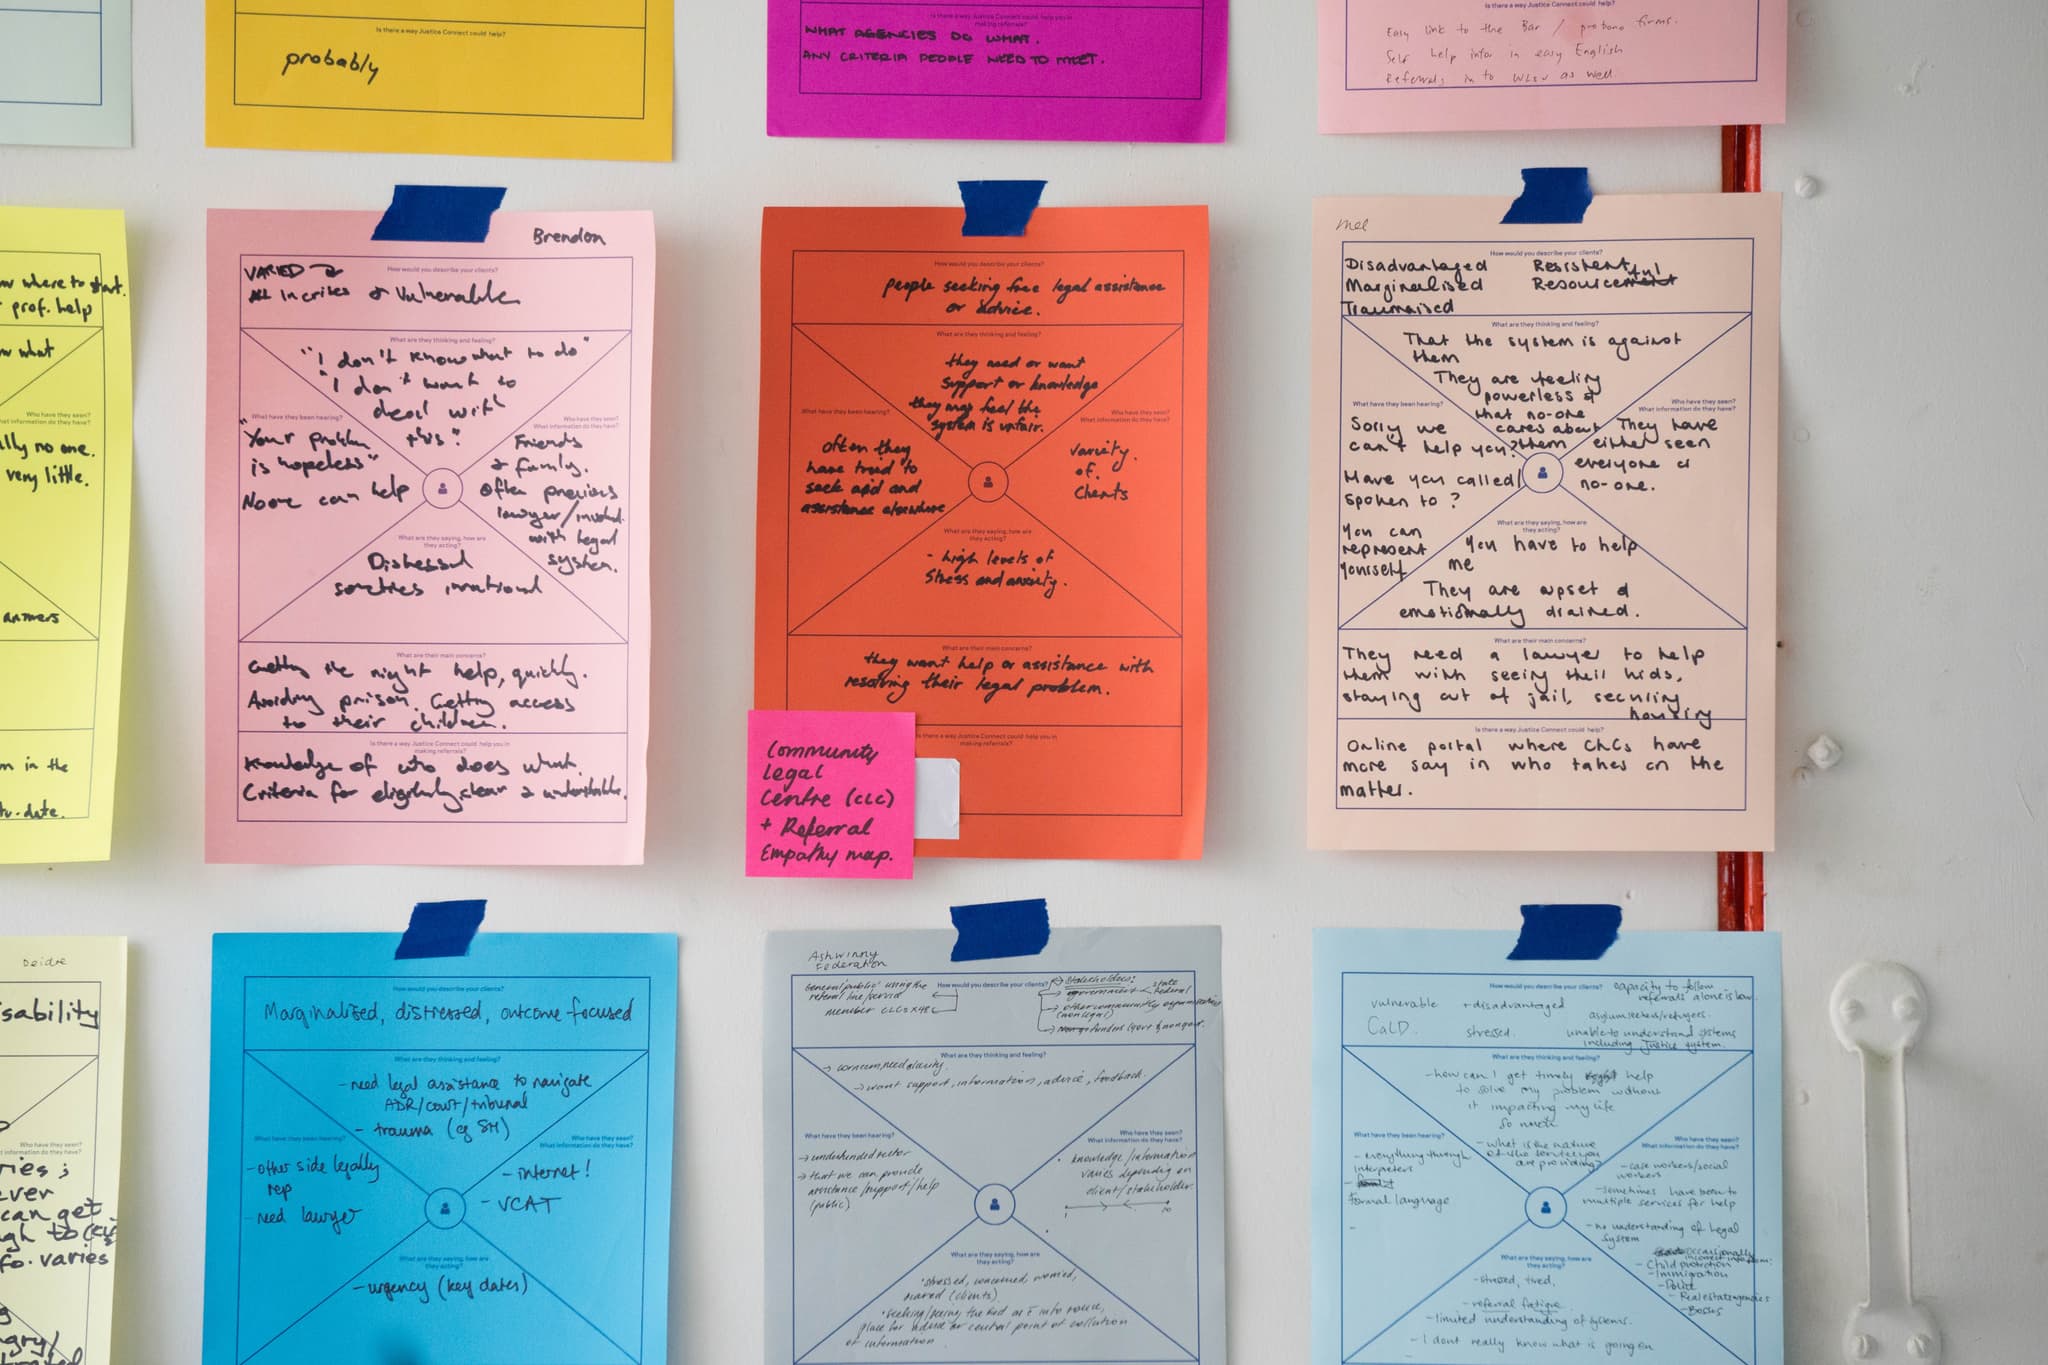 Is there a way Justice Connect could help?
probably
Is there a way Justice Connect could help you in
making referrals?
WHAT AGENCIES DO WHAT.
ANY CRITERIA PEOPLE NEED TO MEET.
Is there a way Justice Connect could help?
Easy link to the Bar / probono firms.
Self help infor in easy English
Referrals in to WLSV as well.
where to start.
prof. help
what
Who have they seen?
information do they have?
no one.
very little.
answers
in the
date.
Brendon
How would you describe your clients?
VARIED
All In crises & Vulnerable
What are they thinking and feeling?
"I don't know what to do"
"I don't want to
deal with
this"
What have they been hearing?
"Your problem
is hopeless"
No one can help
Who have they seen?
What information do they have?
Friends
& family.
Often previous
lawyer/involved
with legal
system.
What are they saying, how are
they acting?
Distressed
sometimes irrational
What are their main concerns?
Getting the right help, quickly.
Avoiding prison. Getting access
to their children.
Is there a way Justice Connect could help you in
making referrals?
Knowledge of who does what.
Criteria for eligibility clear & understandable.
How would you describe your clients?
people seeking free legal assistance
or advice.
What are they thinking and feeling?
they need or want
support or knowledge
they may feel the
system is unfair.
What have they been hearing?
often they
have tried to
seek aid and
assistance elsewhere
Who have they seen?
What information do they have?
Variety
of
Clients
What are they saying, how are
they acting?
- high levels of
stress and anxiety.
What are their main concerns?
they want help or assistance with
resolving their legal problem.
is there a way Justice Connect could help you in
making referrals?
Community
Legal
Centre (CLC)
+ Referral
Empathy map.
Mel
How would you describe your clients?
Disadvantaged
Marginalised
Traumatised
Resistent
Resourceful
What are they thinking and feeling?
That the system is against
them
They are feeling
powerless &
that no-one
cares about
them
What have they been hearing?
Sorry we
can't help you?
Have you called/
spoken to?
You can
represent
yourself
Who have they seen?
What information do they have?
They have
either seen
everyone or
no-one.
What are they saying, how are
they acting?
You have to help
me
They are upset &
emotionally drained.
What are their main concerns?
They need a lawyer to help
them with seeing their kids,
staying out of jail, securing
housing
Is there a way Justice Connect could help?
Online portal where CLCs have
more say in who takes on the
matter.
Deidre
can get
varies
How would you describe your clients?
Marginalised, distressed, outcome focused
What are they thinking and feeling?
- need legal assistance to navigate
ADR/court/tribunal
- trauma (eg SH)
What have they been hearing?
- other side legally
rep
- need lawyer
Who have they seen?
What information do they have?
- internet!
- VCAT
What are they saying, how are
they acting?
- urgency (key dates)
Ashwinny
Federation
How would you describe your clients?
General 'public' using the
referral line/service
member CLCs x 48
Stakeholders:
government
state
federal
other community organisations
(nonlegal)
What are they thinking and feeling?
→ concern, need clarity
→ want support, information, advice, feedback.
What have they been hearing?
→ underfunded sector
→ that we can provide
assistance/support/help
(public)
Who have they seen?
What information do they have?
knowledge/information
varies depending on
client/stakeholder.
1
10
What are they saying, how are
they acting?
• stressed, concerned, worried,
scared (clients)
place for advice or central point of collation
of information
How would you describe your clients?
vulnerable + disadvantaged
CaLD stressed.
capacity to follow
referrals alone is low.
asylum seekers/refugees.
unable to understand systems
including Justice system.
What are they thinking and feeling?
- how can I get timely help
to solve my problem without
it impacting my life
so much
- what is the nature
of the service you
are providing?
What have they been hearing?
- everything through
interpreters
formal language
Who have they seen?
What information do they have?
- case workers/social
workers
- sometimes have been to
multiple services for help
- no understanding of legal
system
occasionally
incorrect info from:
- Child protection
- Immigration
- Police
- Real estate agencies
- Bosses
What are they saying, how are
they acting?
- stressed, tired,
- referral fatigue.
- limited understanding of systems.
- I dont really know what is going on